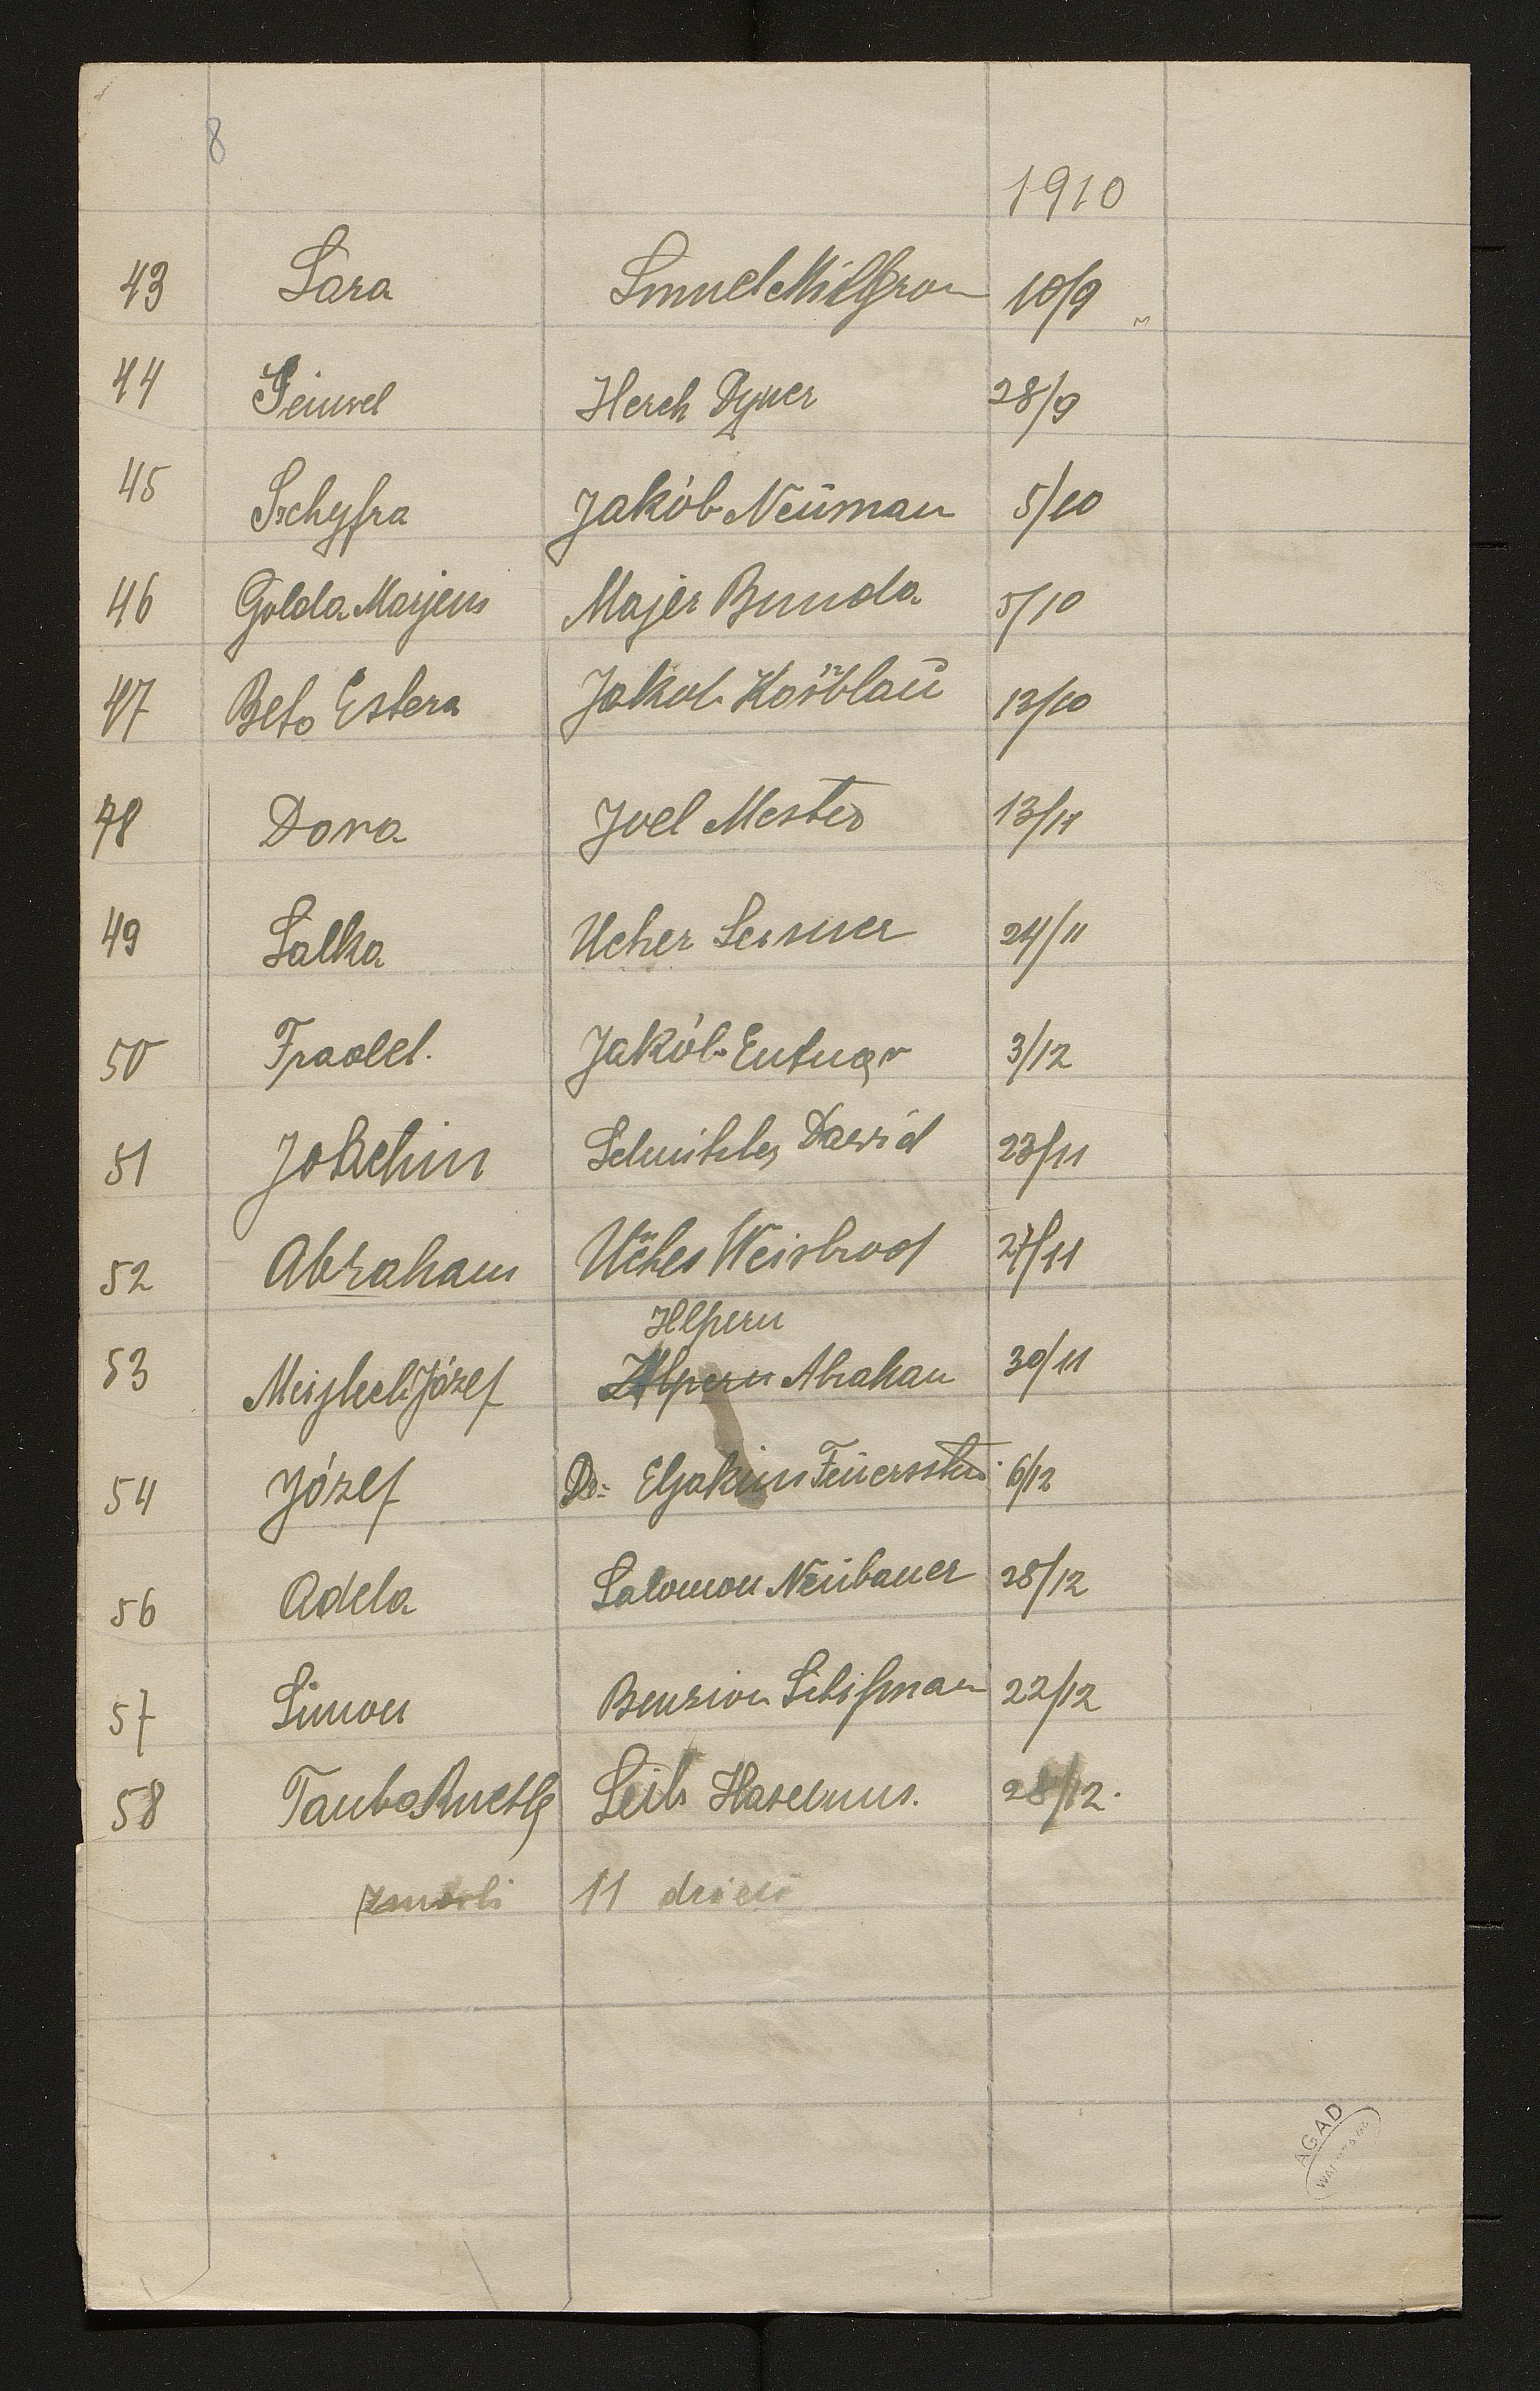 8
1910
43 Sara Smuel Milgrom 10/9
44 Feiwel Herch Dyner 28/9
45 Schyfra Jakób Neuman 5/10
46 Golda Marjem Majer Bunda 5/10
47 Estera Jakob 13/10
48 Dora Joel Mester 13/11
49 Salka Ucher Lerner 24/11
50 Fradel. Jakób Entner 3/12
51 Joachim Dawid 23/11
52 Abraham Ucher Weisbrod 27/11
Hlpern
53 Józef Abraham 30/11
54 Józef Dr: Eljakim Feuerstein 6/12
56 Adela Salomon Neubauer 28/12
57 Simon Benzion Schifman 22/12
58 Tauba Leib 28/12.
zmarli 11 dzieci
AGAD